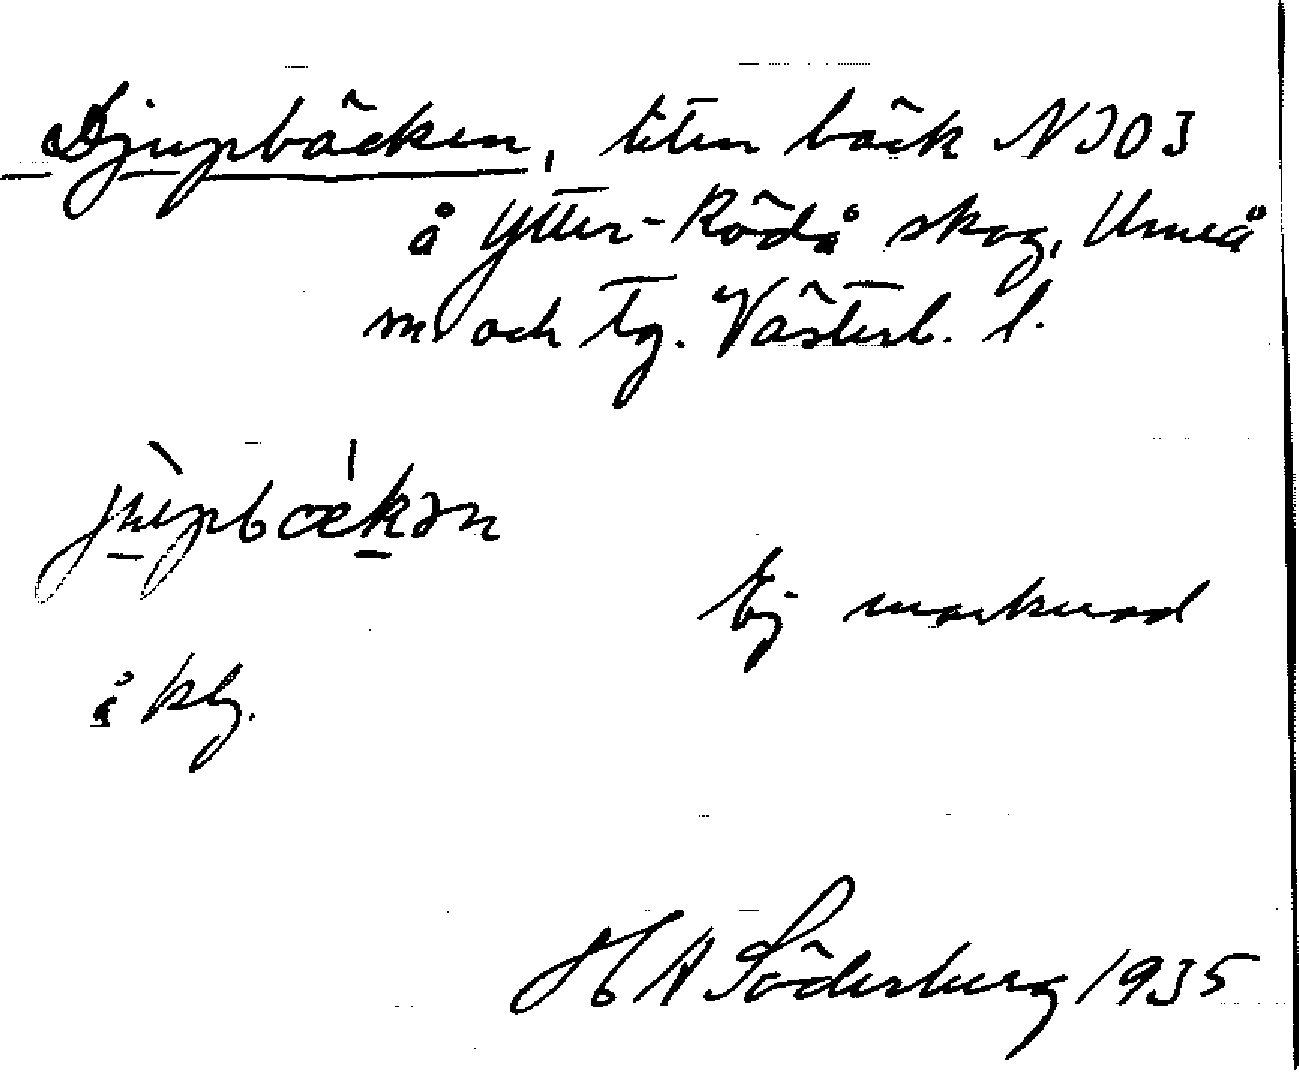 Djupbäcken, liten bäck N703
å Ytter-Rödå skog, Umeå
m och tg. Västerb. l.
jʉ̀pbæ̀kən
Ej marknad
å kg.
H A Söderberg 1935